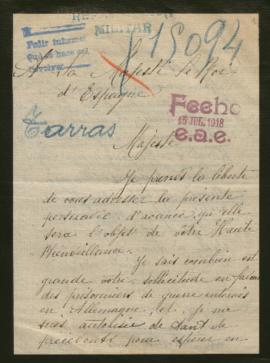 MILITAR
15094
A Sa Majesté Le Roi
d'Espagne
Fecho
15 JUL. 1918
e.a.e.
Tarras
Majesté
Je prends la liberté
de vous adresser la présente
persuadé d'avance qu'elle
sera l'objet de votre Haute
Bienveillance.
Je sais combien est
grande votre sollicitude en faveur
des prisonniers de guerre internés
en Allemagne, et je me
suis autorisé de tant de
précédents pour espérer en